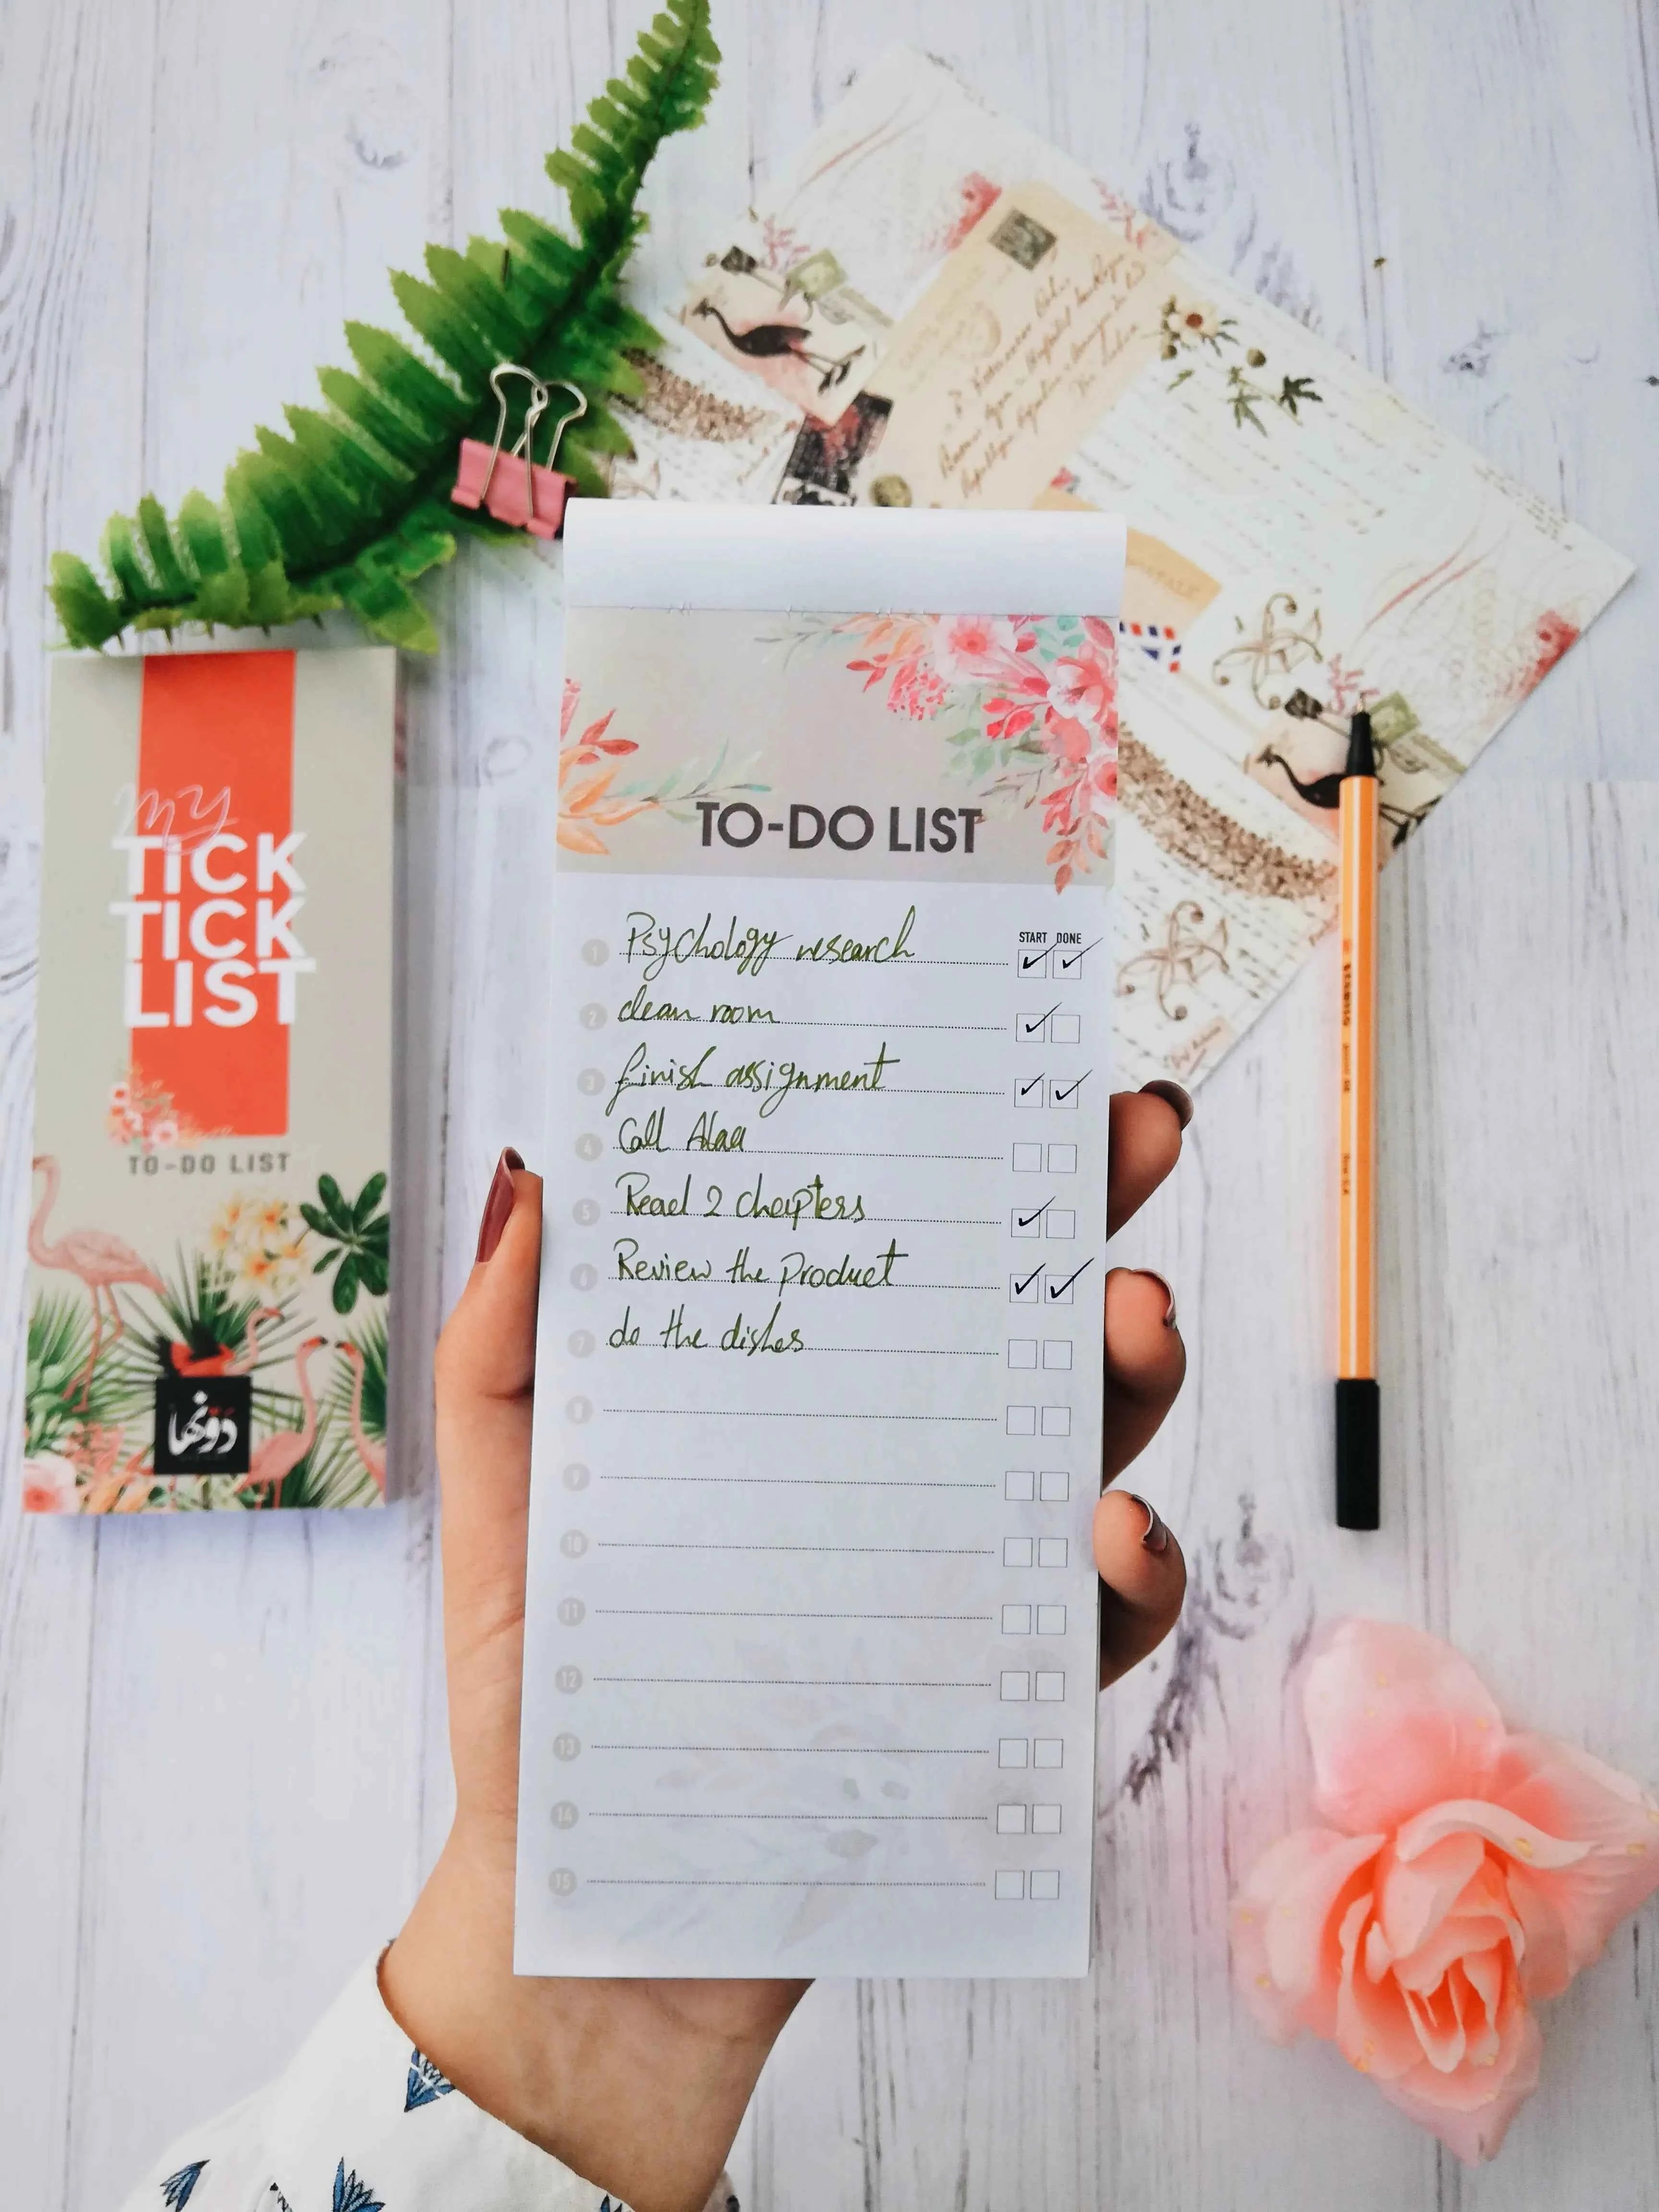 my
TICK
TICK
LIST
TO-DO LIST
دوّنها
TO-DO LIST
START DONE
1 Psychology research
2 clean room
3 finish assignment
4 Call Alaa
5 Read 2 chapters
6 Review the Product
7 do the dishes
8
9
10
11
12
13
14
15